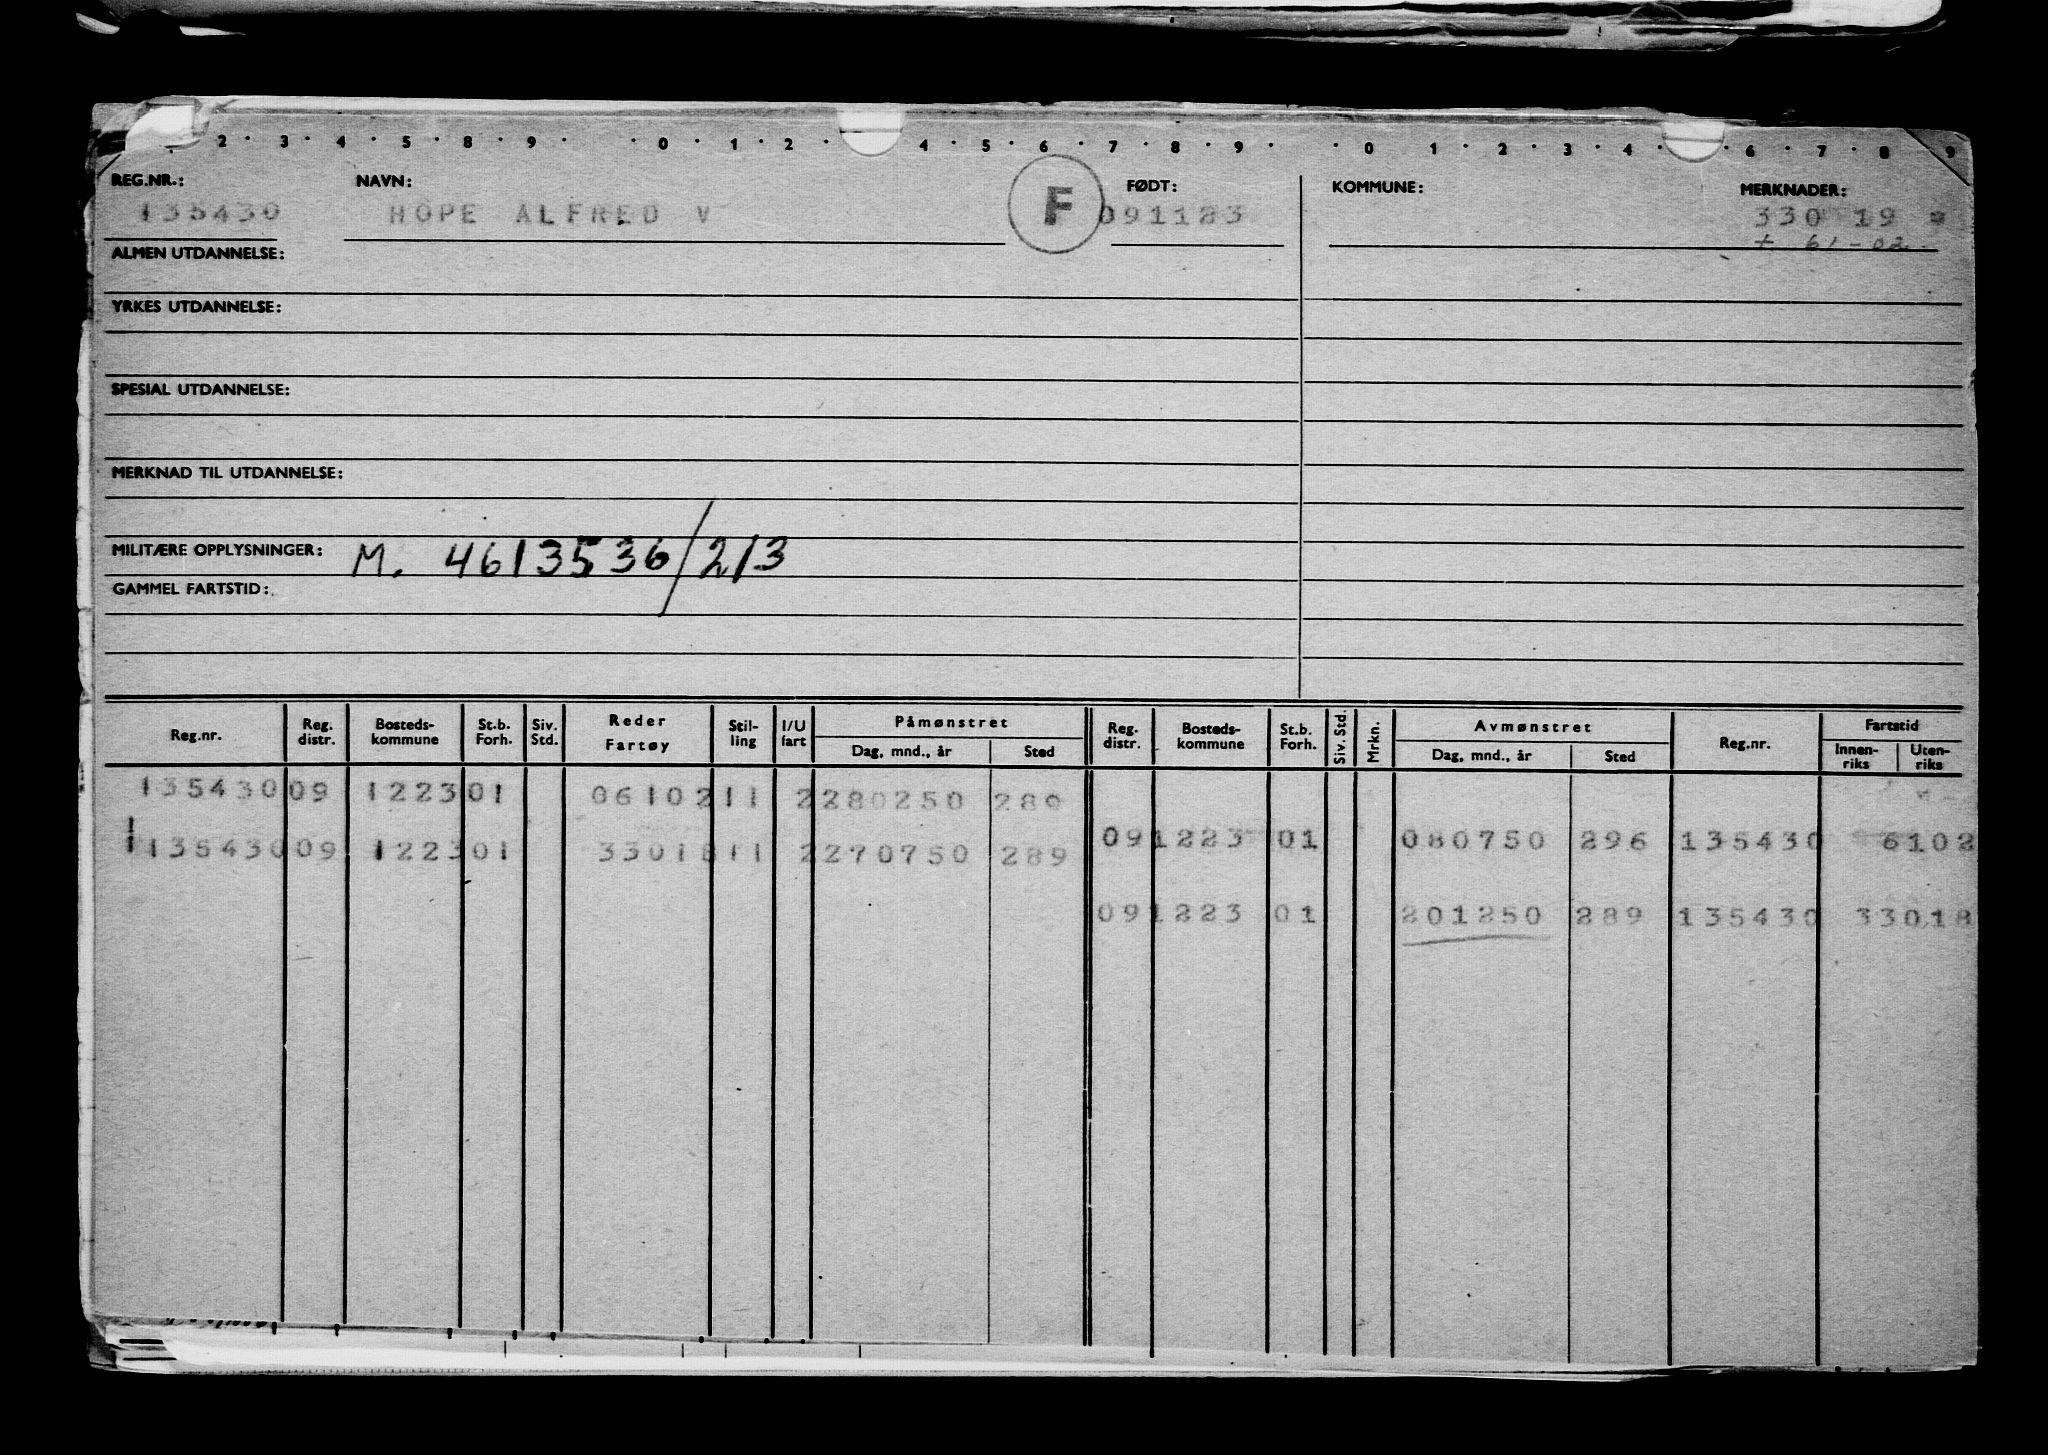 2 · 3 · 4 · 5 · 8 · 9 · · 0 · 1 · 2 · 4 · 5 · 6 · 7 · 8 · 9 · · 0 · 1 · 2 · 3 · 4 · · 6 · 7 · 8 · 9
REG.NR.: NAVN: FØDT: KOMMUNE: MERKNADER:
135430 HOPE ALFRED V F 091123 330 19 *
+ 61-02
ALMEN UTDANNELSE:
YRKES UTDANNELSE:
SPESIAL UTDANNELSE:
MERKNAD TIL UTDANNELSE:
MILITÆRE OPPLYSNINGER: M. 4613536/213
GAMMEL FARTSTID:
Reg.nr. Reg. distr. Bosteds-kommune St.b. Forh. Siv. Std. Reder Fartøy Stil-ling I/U fart Påmønstret Dag, mnd., år Sted Reg. distr. Bosteds-kommune St.b. Forh. Siv. Std. Mrkn. Avmønstret Dag, mnd., år Sted Reg.nr. Fartstid Innen-riks Uten-riks
135430 09 1223 01 06102 11 2 280250 289
09 1223 01 080750 296 135430 6102
135430 09 1223 01 33018 11 2 270750 289
09 1223 01 201250 289 135430 33018